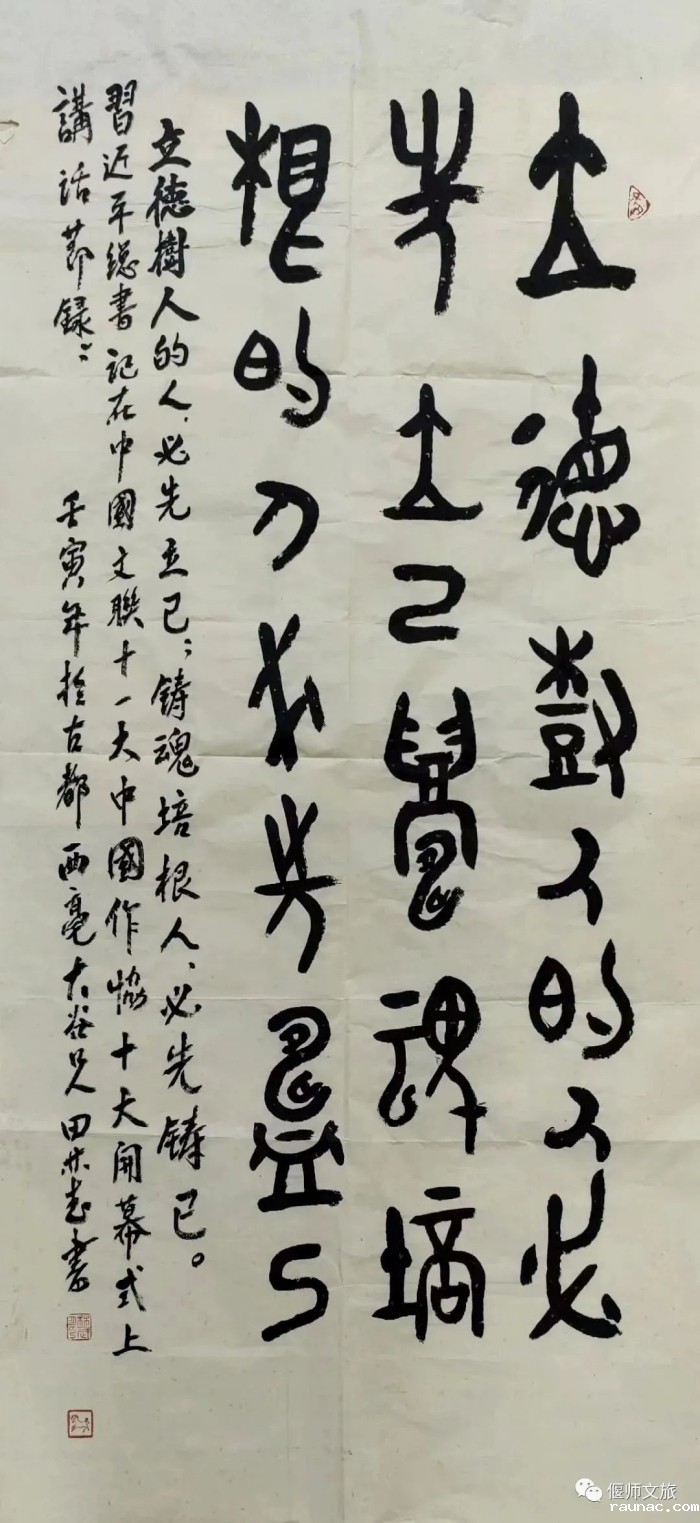 立德樹人的人必
先立己鑄魂培
根的人必先鑄己
立德樹人的人、必先立己;鑄魂培根人、必先鑄己。
習近平總書記在中國文聯十一大中國作協十大開幕式上
講話節録:
壬寅年於古都西亳大谷口人田書
偃师文旅
raunac.com